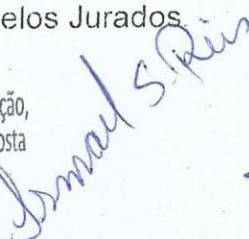 elos Jurados
ção,
osta
Ismael S. Reis